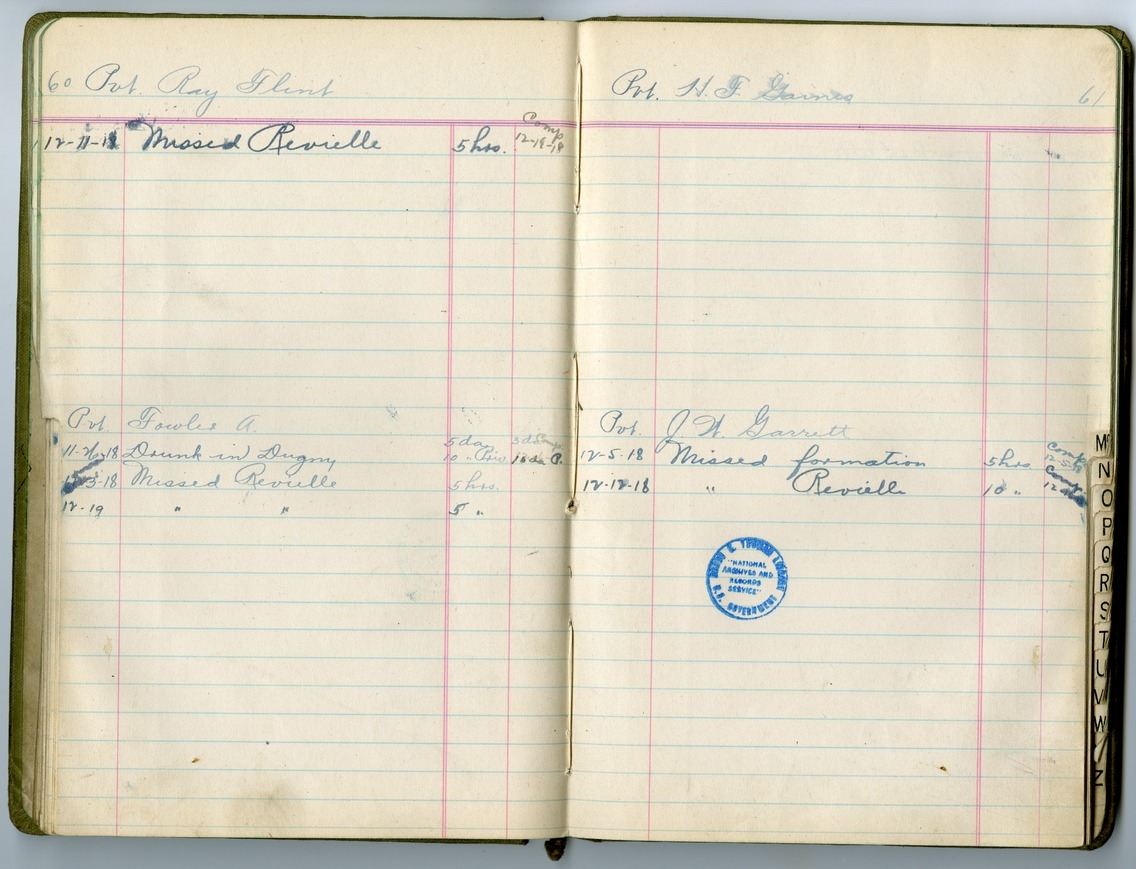 60 Pvt. Ray Flint
12-11-18 Missed Revielle 5 hrs. Comp
12-19-18
Pvt. Fowler A.
11-26-18 Drunk in Dugny 5 da
10 " Priv.
12-3-18 Missed Revielle 5 hrs.
12-19 " " 5 "
Pvt. H. F. Garnes 61
Pvt. J. W. Garrett
12-5-18 Missed formation 5 hrs. Comp
12-5-18
12-12-18 " Revielle 10 " Comp
HARRY S. TRUMAN LIBRARY
"NATIONAL
ARCHIVES AND
RECORDS
SERVICE"
U.S. GOVERNMENT
M
N
O
P
Q
R
S
T
U
V
W
Z